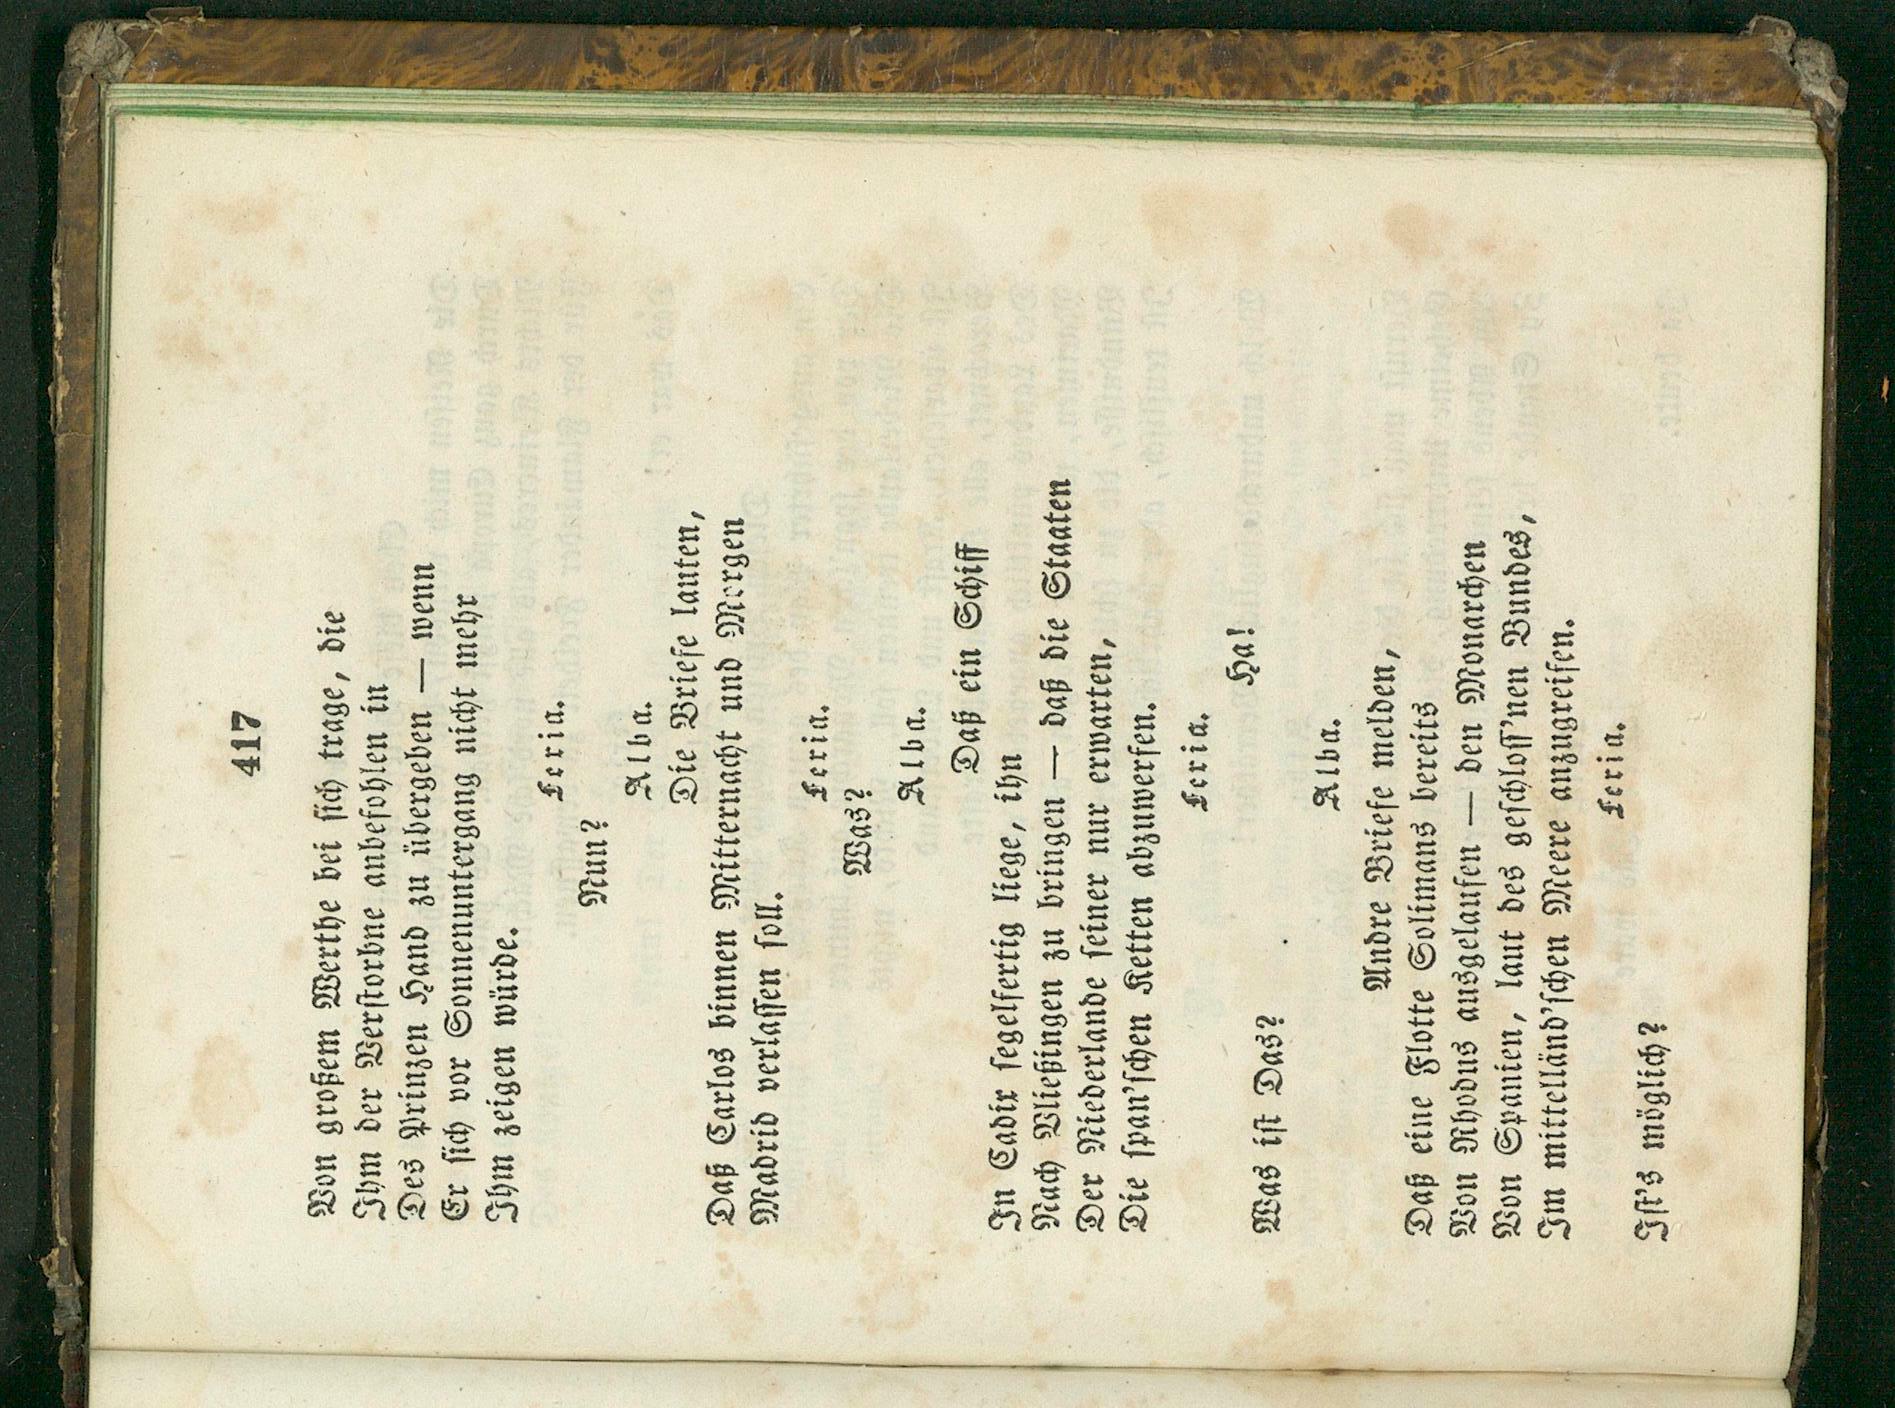 417
Von großem Werthe bei sich trage, die
Ihm der Verstorbne anbefohlen in
Des Prinzen Hand zu übergeben — wenn
Er sich vor Sonnenuntergang nicht mehr
Ihm zeigen würde.
Feria.
Nun?
Alba.
Die Briefe lauten,
Daß Carlos binnen Mitternacht und Morgen
Madrid verlassen soll.
Feria.
Was?
Alba.
Daß ein Schiff
In Cadix segelfertig liege, ihn
Nach Vließingen zu bringen — daß die Staaten
Der Niederlande seiner nur erwarten,
Die span'schen Ketten abzuwerfen.
Feria.
Ha!
Was ist Das?
Alba.
Andre Briefe melden,
Daß eine Flotte Solimans bereits
Von Rhodus ausgelaufen — den Monarchen
Von Spanien, laut des geschloss'nen Bundes,
Im mittelländ'schen Meere anzugreifen.
Feria.
Ist's möglich?